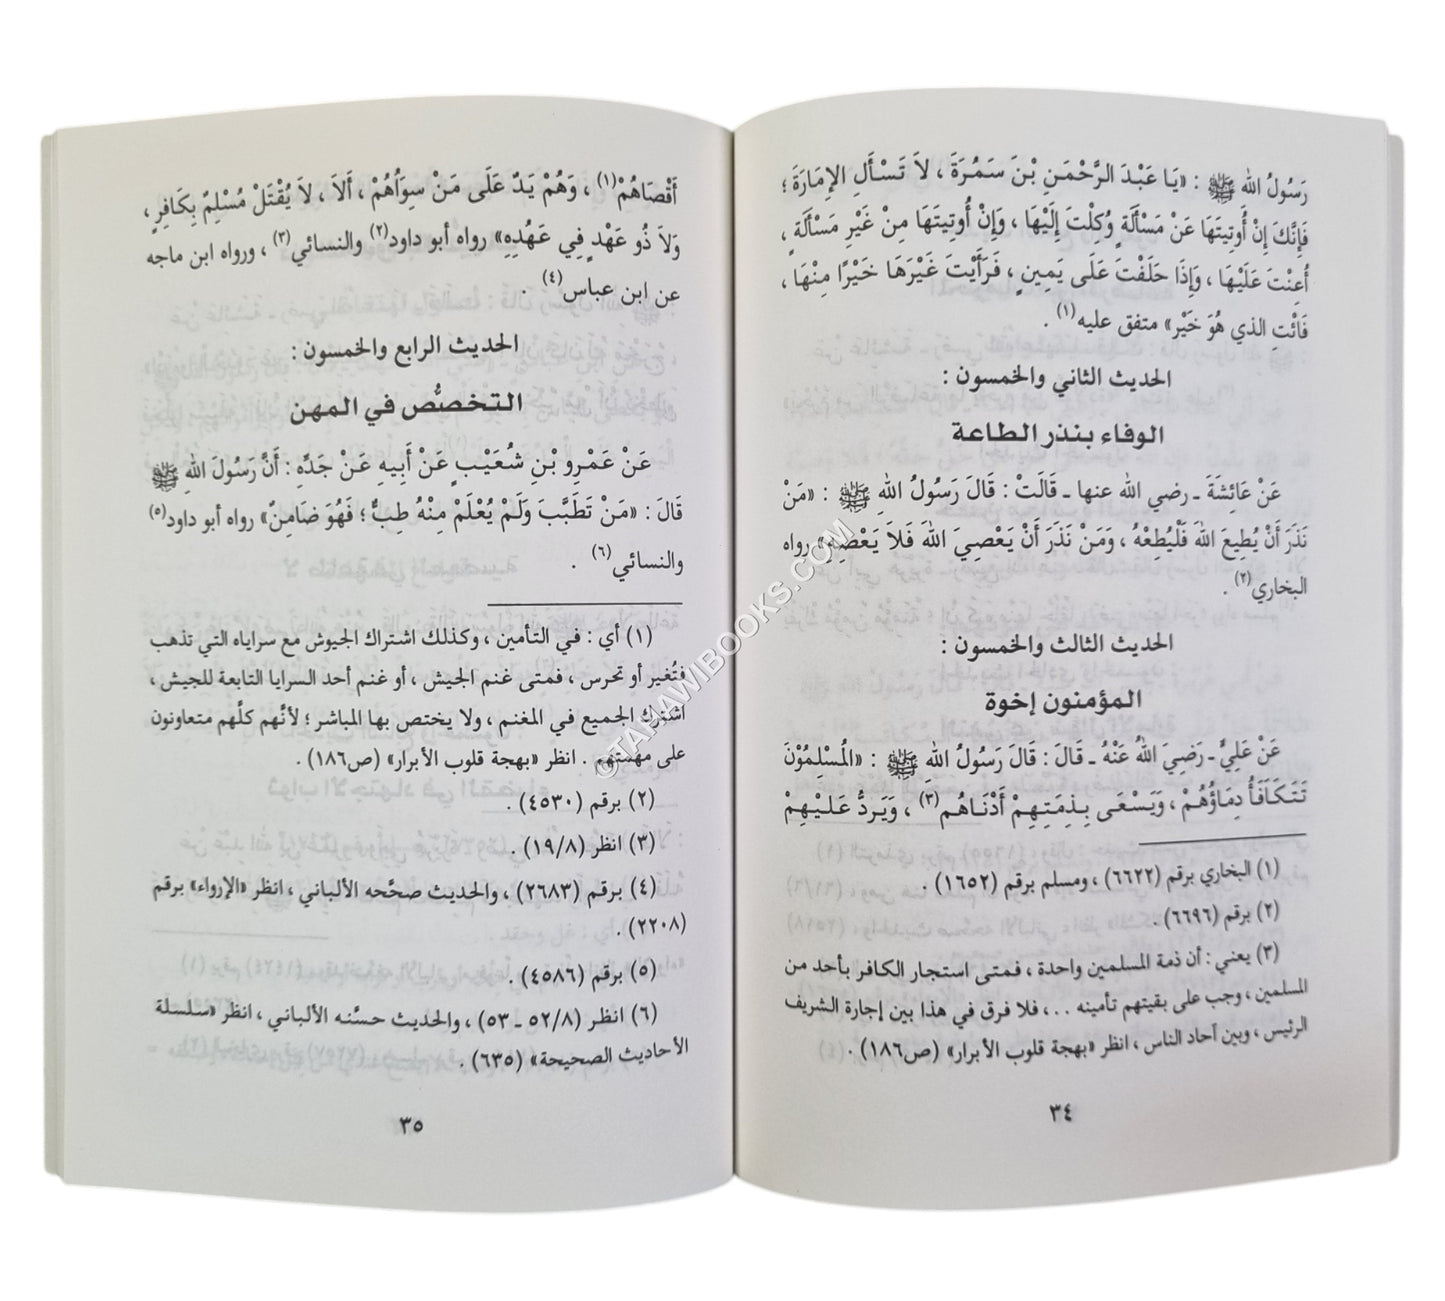 رَسُولُ الله ﷺ : «يَا عَبْدَ الرَّحْمَنِ بْنَ سَمُرَةَ ، لاَ تَسْأَلِ الإِمَارَةَ ؛
فَإِنَّكَ إِنْ أُوتِيتَهَا عَنْ مَسْأَلَةٍ وُكِلْتَ إِلَيْهَا ، وَإِنْ أُوتِيتَهَا مِنْ غَيْرِ مَسْأَلَةٍ ،
أُعِنْتَ عَلَيْهَا ، وَإِذَا حَلَفْتَ عَلَى يَمِينٍ ، فَرَأَيْتَ غَيْرَهَا خَيْرًا مِنْهَا ،
فَائْتِ الذي هُوَ خَيْر» متفق عليه(١) .
الحديث الثاني والخمسون :
الوفاء بنذر الطاعة
عَنْ عَائِشَةَ ـ رضي الله عنها ـ قَالَتْ : قَالَ رَسُولُ اللهِ ﷺ : «مَنْ
نَذَرَ أَنْ يُطِيعَ اللهَ فَلْيُطِعْهُ ، وَمَنْ نَذَرَ أَنْ يَعْصِيَ اللهَ فَلاَ يَعْصِهِ» رواه
البخاري(٢) .
الحديث الثالث والخمسون :
المؤمنون إخوة
عَنْ عَلِيٍّ ـ رَضِيَ اللهُ عَنْهُ ـ قَالَ : قَالَ رَسُولُ اللهِ ﷺ : «المُسْلِمُوْنَ
تَتَكَافَأُ دِمَاؤُهُمْ ، وَيَسْعَى بِذِمَتِهِمْ أَدْنَاهُم(٣) ، وَيَردُّ عَلَيْهِمْ
(١) البخاري برقم (٦٦٢٢) ، ومسلم برقم (١٦٥٢) .
(٢) برقم (٦٦٩٦) .
(٣) يعني : أن ذمة المسلمين واحدة ، فمتى استجار الكافر بأحد من
المسلمين ، وجب على بقيتهم تأمينه . . ، فلا فرق في هذا بين إجارة الشريف
الرئيس ، وبين آحاد الناس ، انظر «بهجة قلوب الأبرار» (ص١٨٦) .
٣٤
أَقْصَاهُمْ(١) ، وَهُمْ يَدٌ عَلَى مَنْ سِوَاُهُمْ ، أَلاَ ، لاَ يُقْتَلْ مُسْلِمٌ بِكَافِرٍ ،
وَلاَ ذُو عَهْدٍ فِي عَهْدِهِ» رواه أبو داود(٢) والنسائي(٣) ، ورواه ابن ماجه
عن ابن عباس(٤) .
الحديث الرابع والخمسون :
التخصُّص في المهن
عَنْ عَمْرِو بْنِ شُعَيْبٍ عَنْ أَبِيهِ عَنْ جَدِّهِ : أَنَّ رَسُولَ اللهِ ﷺ
قَالَ : «مَنْ تَطَبَّبَ وَلَمْ يُعْلَمْ مِنْهُ طِبٌّ ؛ فَهُوَ ضَامِنٌ» رواه أبو داود(٥)
والنسائي(٦) .
(١) أي : في التأمين ، وكذلك اشتراك الجيوش مع سراياه التي تذهب
فتُغير أو تحرس ، فمتى غنم الجيش ، أو غنم أحد السرايا التابعة للجيش ،
اشترك الجميع في المغنم ، ولا يختص بها المباشر ؛ لأنَّهم كلَّهم متعاونون
على مهمتهم . انظر «بهجة قلوب الأبرار» (ص١٨٦) .
(٢) برقم (٤٥٣٠) .
(٣) انظر (١٩/٨) .
(٤) برقم (٢٦٨٣) ، والحديث صحَّحه الألباني ، انظر «الإرواء» برقم
(٢٢٠٨) .
(٥) برقم (٤٥٨٦) .
(٦) انظر (٥٢/٨ ـ ٥٣) ، والحديث حسَّنه الألباني ، انظر «سلسلة
الأحاديث الصحيحة» (٦٣٥) .
٣٥
©TAHAWIBOOKS.COM